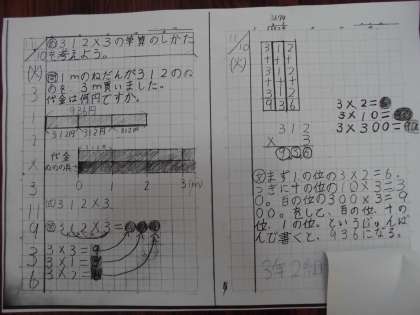 11/10
(火)
め312×3の筆算のしかた
を考えよう。
問1mのねだんが312円のぬ
のを3m買いました。
代金は何円ですか。
936円
312円 312円 312円
代金
ぬのの長さ
0 1 2 3(m)
式312×3
312×3=
3×3=9
3×1=3
3×2=6
11/10
(火)
312
+
312
+
312
936
3×2=6
3×10=30
3×300=900
312
× 3
936
まず1の位の3×2=6、
つぎに十の位の10×3=3
0。百の位の300×3=9
00。をして、百の位、十の
位、1の位、というじゅんば
んで書くと、936になる。
3年2組